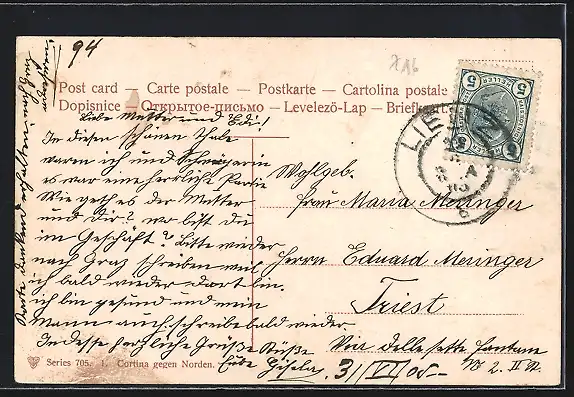 94
Post card — Carte postale — Postkarte — Cartolina postale
Dopisnice — Открытое-письмо — Levelezö-Lap — Briefkaart
Liebe Mutter und Edi!
In diesen schönen Thale
waren ich und Schwägerin
es war eine herrliche Partie
Wie geht es der Mutter
und dir? wo bist du
im Geschäft? Bitte wieder
nach Graz schreiben weil
ich bald wieder dort bin.
ich bin gesund und mein
Mann auch. schreibe bald wieder
Indesse herzliche Grüße Küße
Eure Gisela
Karte dankend erhalten, nach Graz
Wohlgeb.
Frau Maria Meninger
Herrn Eduard Meninger
Triest
Via delle sette fontane
No 2. II St.
31/VII 05
LIENZ
5 5
HELLER
Series 705. 1. Cortina gegen Norden.